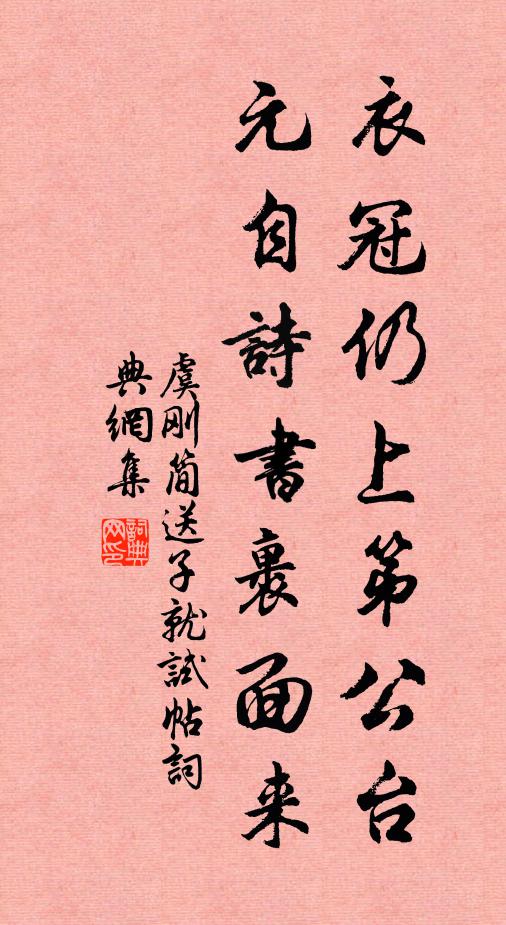 衣冠仍上第公台
元自詩書裹面来
虞刚简送子就試帖詞
典網集
詞典
网印